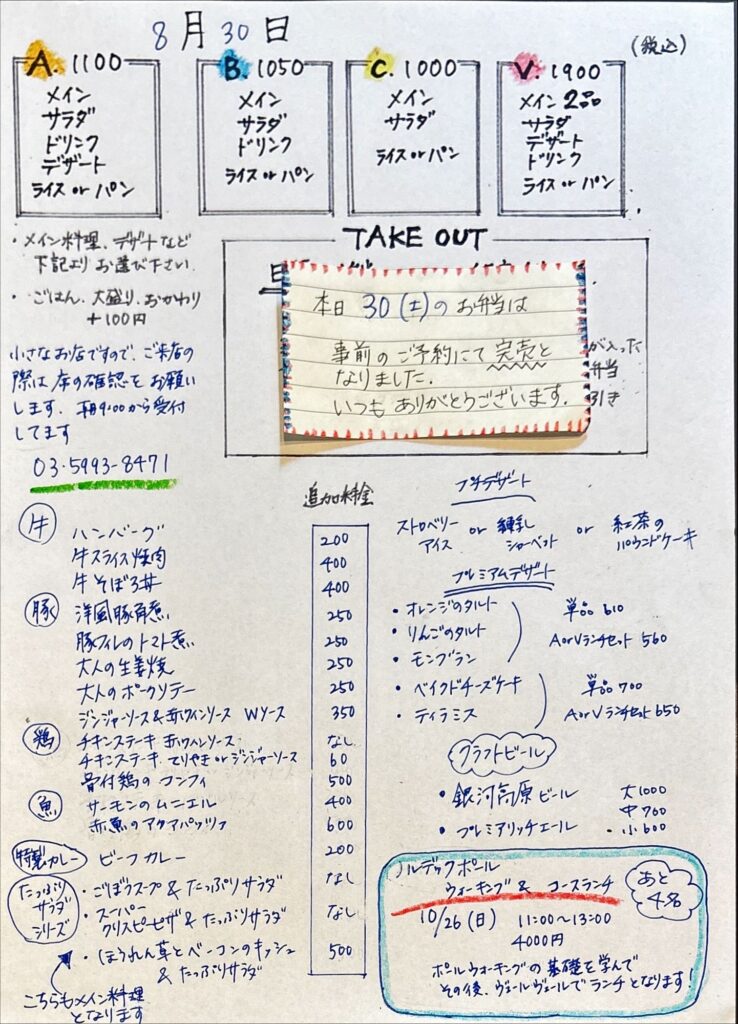 8月30日
(税込)
A. 1100
メイン
サラダ
ドリンク
デザート
ライス or パン
B. 1050
メイン
サラダ
ドリンク
ライス or パン
C. 1000
メイン
サラダ
ライス or パン
V. 1900
メイン 2品
サラダ
デザート
ドリンク
ライス or パン
・メイン料理、デザートなど
下記より お選び下さい
・ごはん、大盛り、おかわり
+100円
小さなお店ですので、ご来店の
際は 席の確認を お願い
します. 朝9:00から受付
してます
03-5993-8471
TAKE OUT
本日 30(土)の お弁当は
事前の ご予約にて 完売と
なりました.
いつも ありがとうございます.
が入った
弁当
引き
追加料金
牛
ハンバーグ 200
牛スライス焼肉 400
牛そぼろ丼 400
豚
洋風豚角煮 250
豚フィレのトマト煮 250
大人の生姜焼 250
大人のポークソテー 250
ジンジャーソース&赤ワインソース Wソース 350
鶏
チキンステーキ 赤ワインソース なし
チキンステーキ てりやき or ジンジャーソース 60
骨付鶏の コンフィ 500
魚
サーモンの ムニエル 400
赤魚の アクアパッツァ 600
特製カレー
ビーフカレー 200
たっぷり
サラダ
シリーズ
・ごぼうスープ & たっぷりサラダ なし
・スーパー
クリスピーピザ & たっぷりサラダ なし
・ほうれん草とベーコンのキッシュ
& たっぷりサラダ 500
こちらもメイン料理
となります
プチデザート
ストロベリー
アイス
or
練乳
シャーベット
or
紅茶の
パウンドケーキ
プレミアムデザート
・オレンジのタルト
・りんごのタルト
・モンブラン
単品 610
A or Vランチセット 560
・ベイクドチーズケーキ
・ティラミス
単品 700
A or Vランチセット 650
クラフトビール
・銀河高原ビール 大1000
中700
・プレミアリッチエール ・小600
ノルディックポール
ウォーキング & コースランチ
あと
4名
10/26(日) 11:00〜13:00
4000円
ポールウォーキングの 基礎を学んで
その後、ヴェールヴェールで ランチとなります!